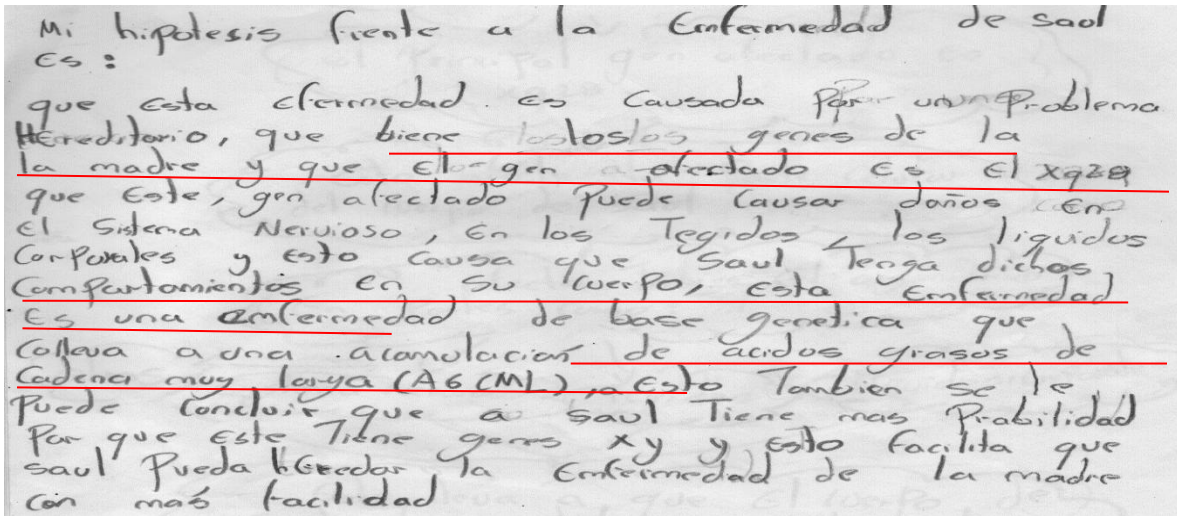 Mi hipotesis frente a la Enfermedad de saul
Es :
que Esta Efermedad es causada por un Problema
Hereditario, que biene los genes de la
la madre y que El gen afectado Es El xq28
que Este, gen afectado Puede Causar daños En
El Sistema Nervioso, En los Tegidos, los liquidos
Corporales y Esto Causa que Saul Tenga dichos
Compartamientos En Su Cuerpo, Esta Enfermedad
Es una Enfermedad de base genetica que
Colleva a una acamulacion de acidos grasos de
Cadena muy larga (A6 CML), Esto Tambien se le
Puede Concluir que a Saul Tiene mas Prabilidad
Por que Este Tiene genes xy y Esto Facilita que
Saul Pueda HEredar la Enfermedad de la madre
con más facilidad